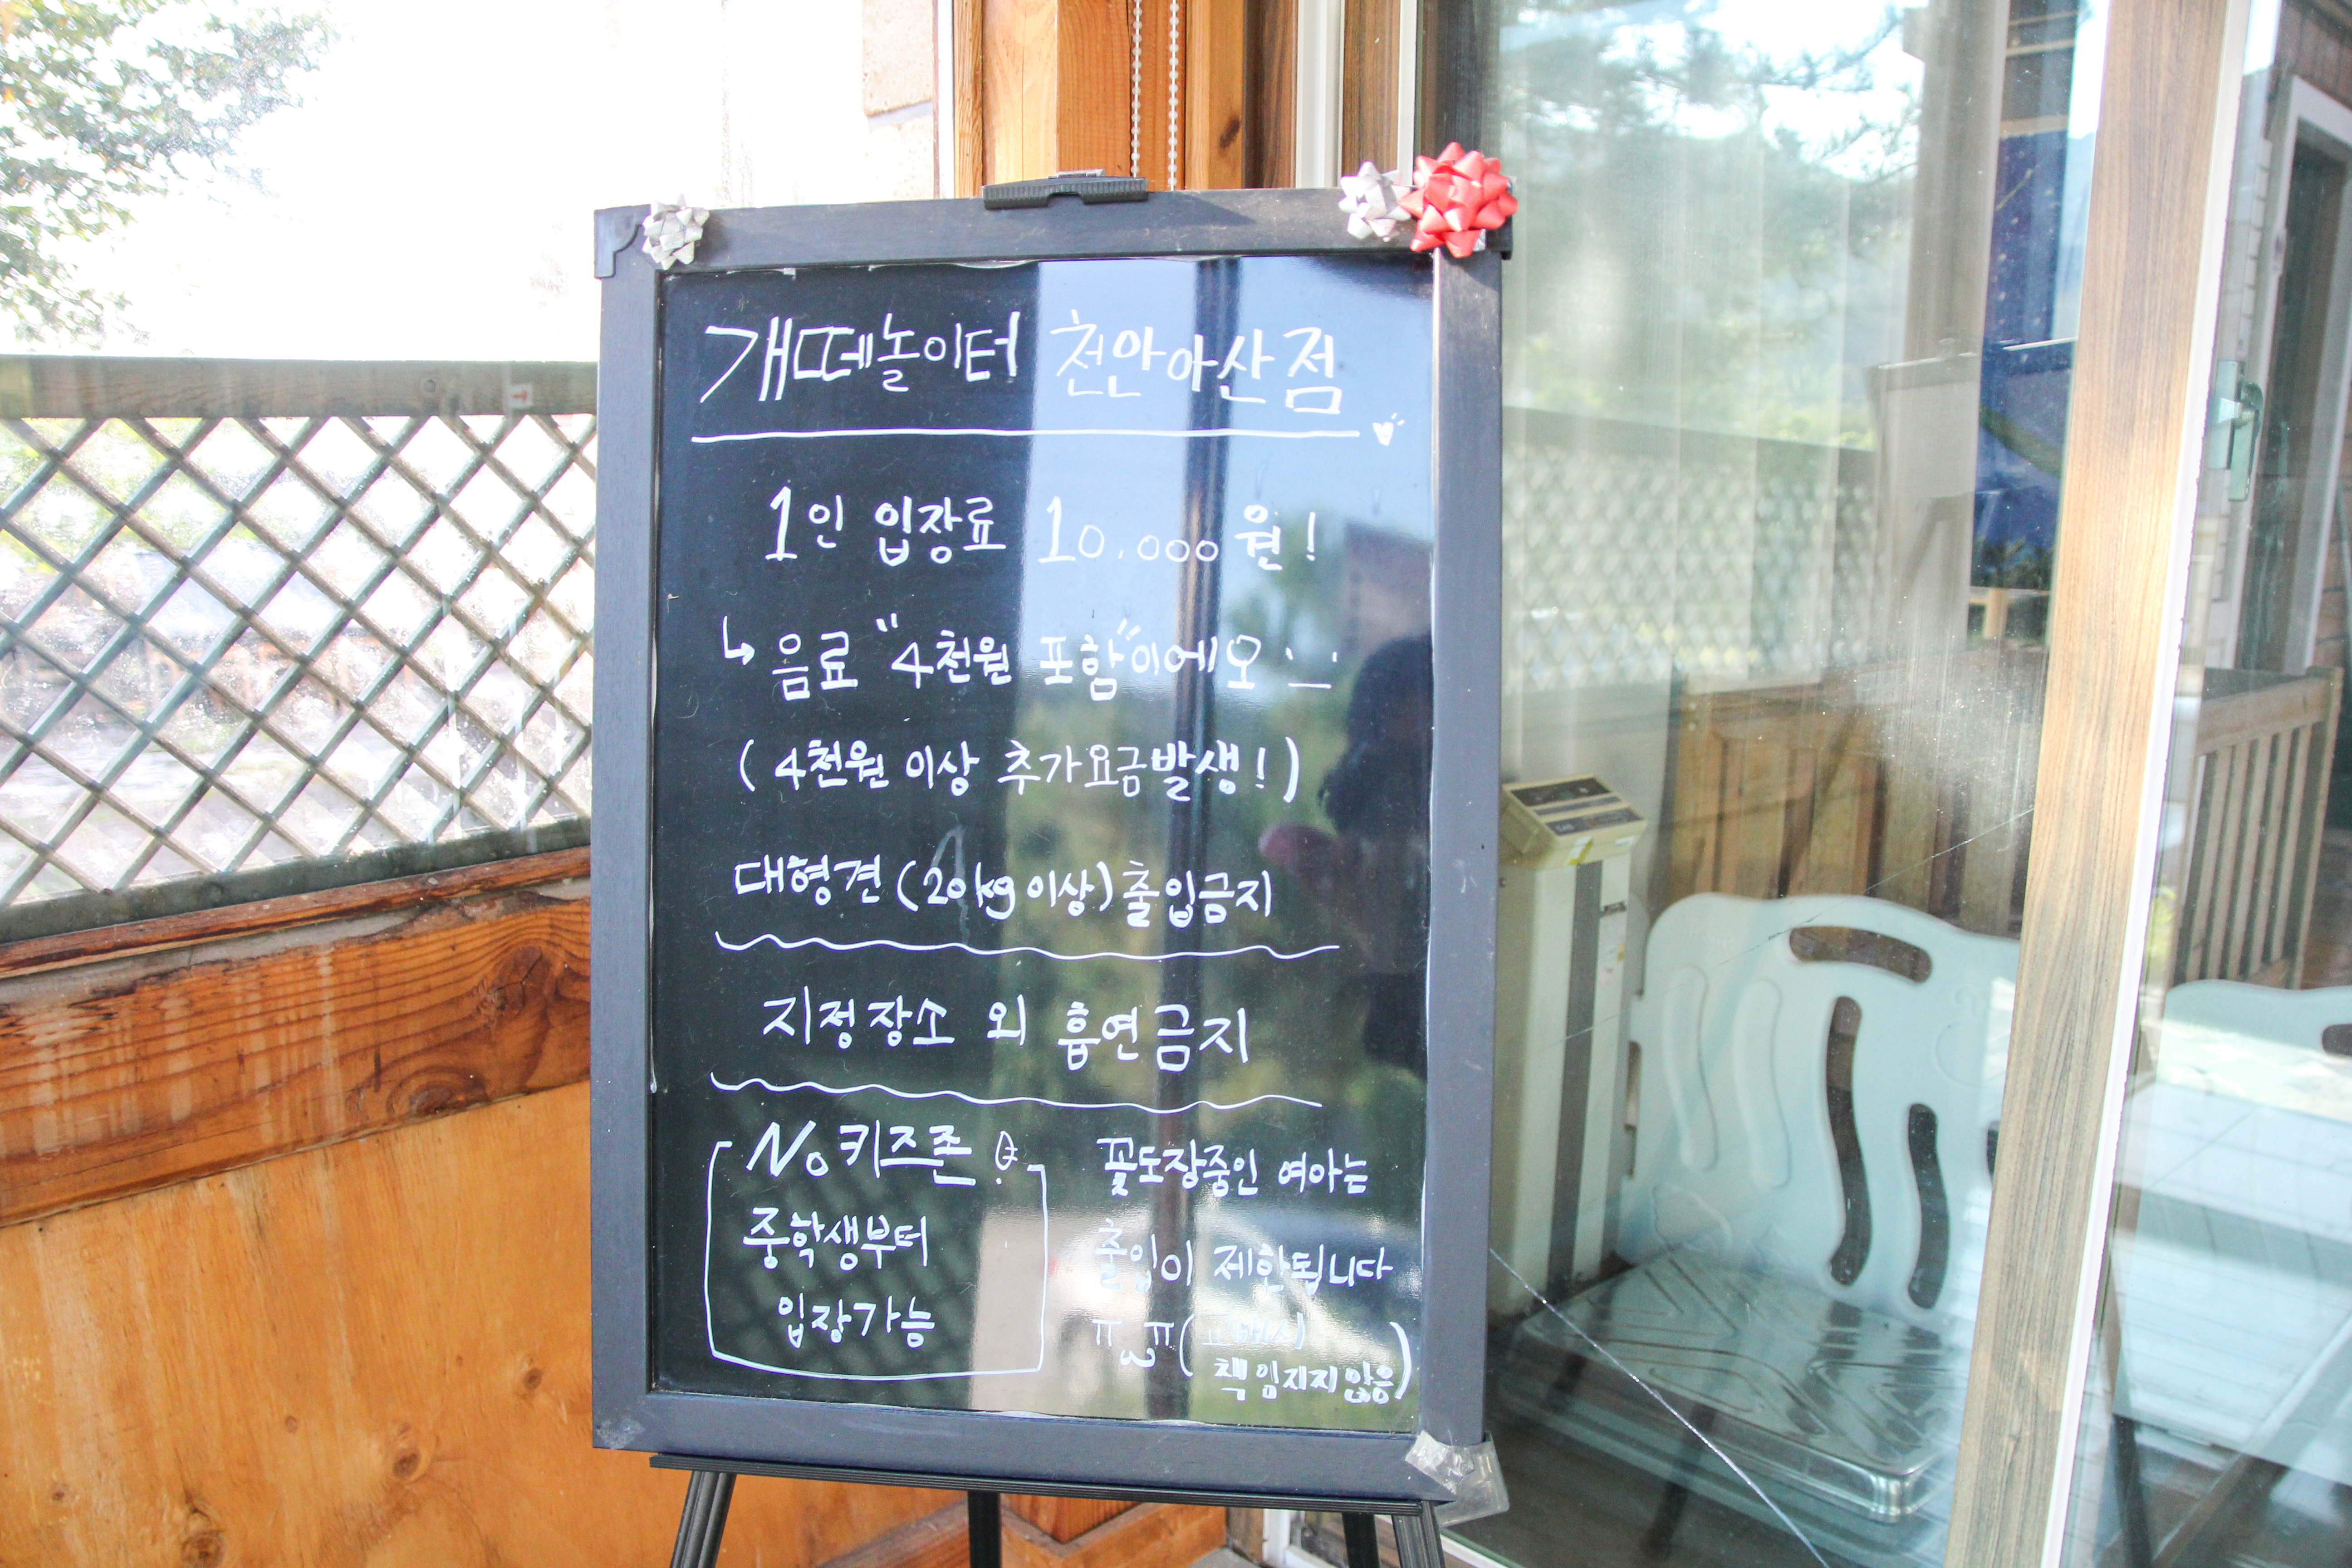 개떼놀이터 천안아산점
1인 입장료 10.000원!
↳ 음료 "4천원 포함"이에오
(4천원 이상 추가요금발생!)
대형견(20kg이상)출입금지
지정장소 외 흡연금지
No키즈존!
중학생부터
입장가능
꽃도장중인 여아는
출입이 제한됩니다
ㅠ_ㅠ(교배시
책임지지않음)